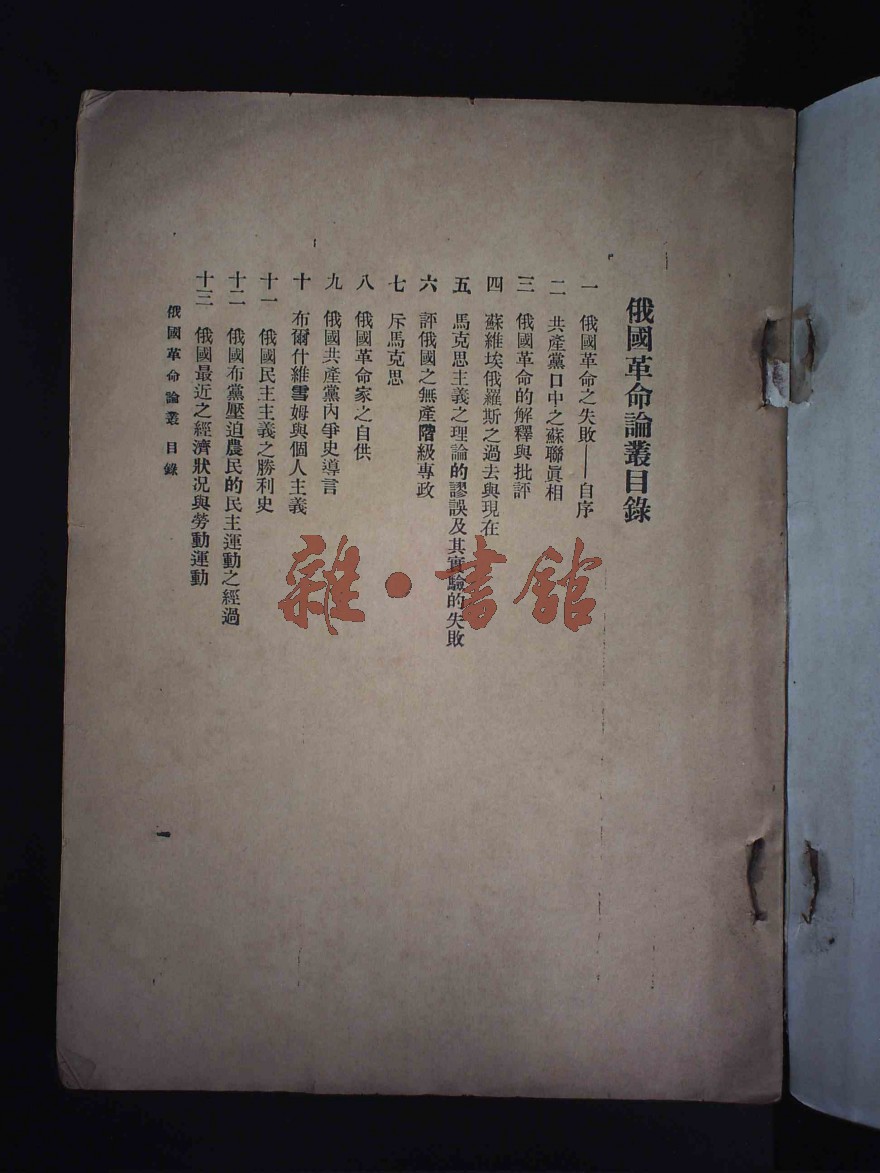 俄國革命論叢目錄
一 俄國革命之失敗——自序
二 共產黨口中之蘇聯眞相
三 俄國革命的解釋與批評
四 蘇維埃俄羅斯之過去與現在
五 馬克思主義之理論的謬誤及其實驗的失敗
六 評俄國之無產階級專政
七 斥馬克思
八 俄國革命家之自供
九 俄國共產黨內爭史導言
十 布爾什維雪姆與個人主義
十一 俄國民主主義之勝利史
十二 俄國布黨壓迫農民的民主運動之經過
十三 俄國最近之經濟狀况與勞動運動
俄國革命論叢 目錄
一
雜·書館